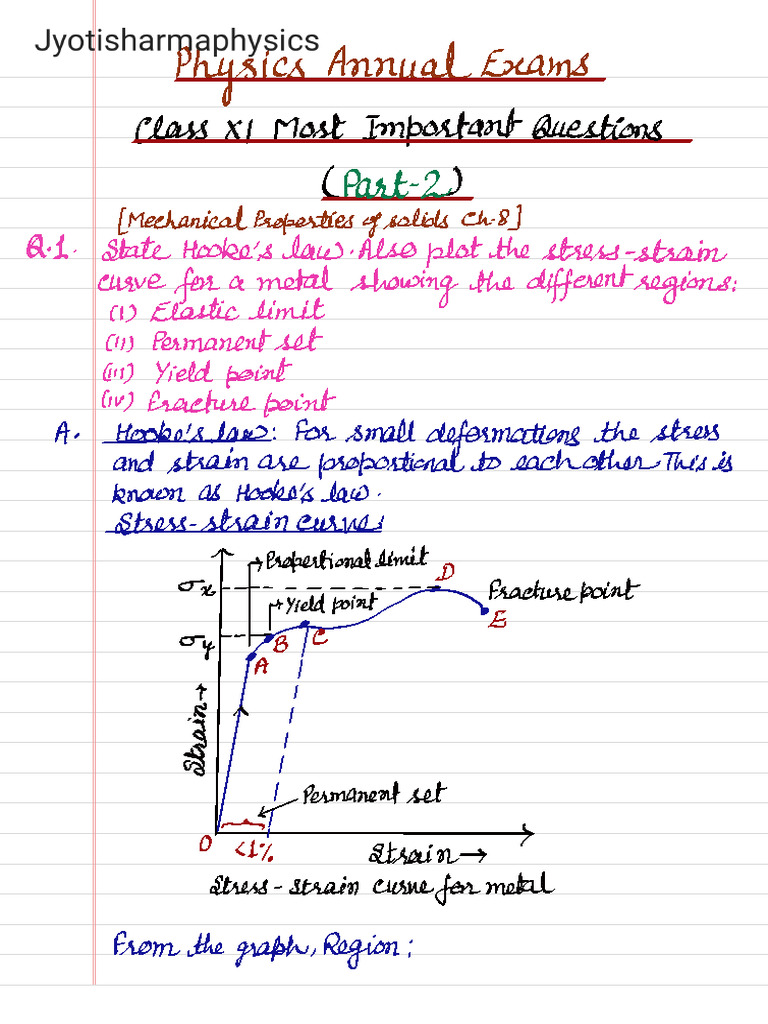 Jyotisharmaphysics
Physics Annual Exams
Class XI Most Important Questions
(Part-2)
[Mechanical Properties of solids Ch-8]
Q.1. State Hooke's law. Also plot the stress-strain
curve for a metal showing the different regions:
(i) Elastic limit
(ii) Permanent set
(iii) Yield point
(iv) Fracture point
A. Hooke's law: For small deformations the stress
and strain are proportional to each other. This is
known as Hooke's law.
Stress-strain curve:
Proportional limit
D
σx
Fracture point
Yield point
E
σy
B
C
A
Strain→
Permanent set
O
<1%
Strain→
Stress-strain curve for metal
From the graph, Region: